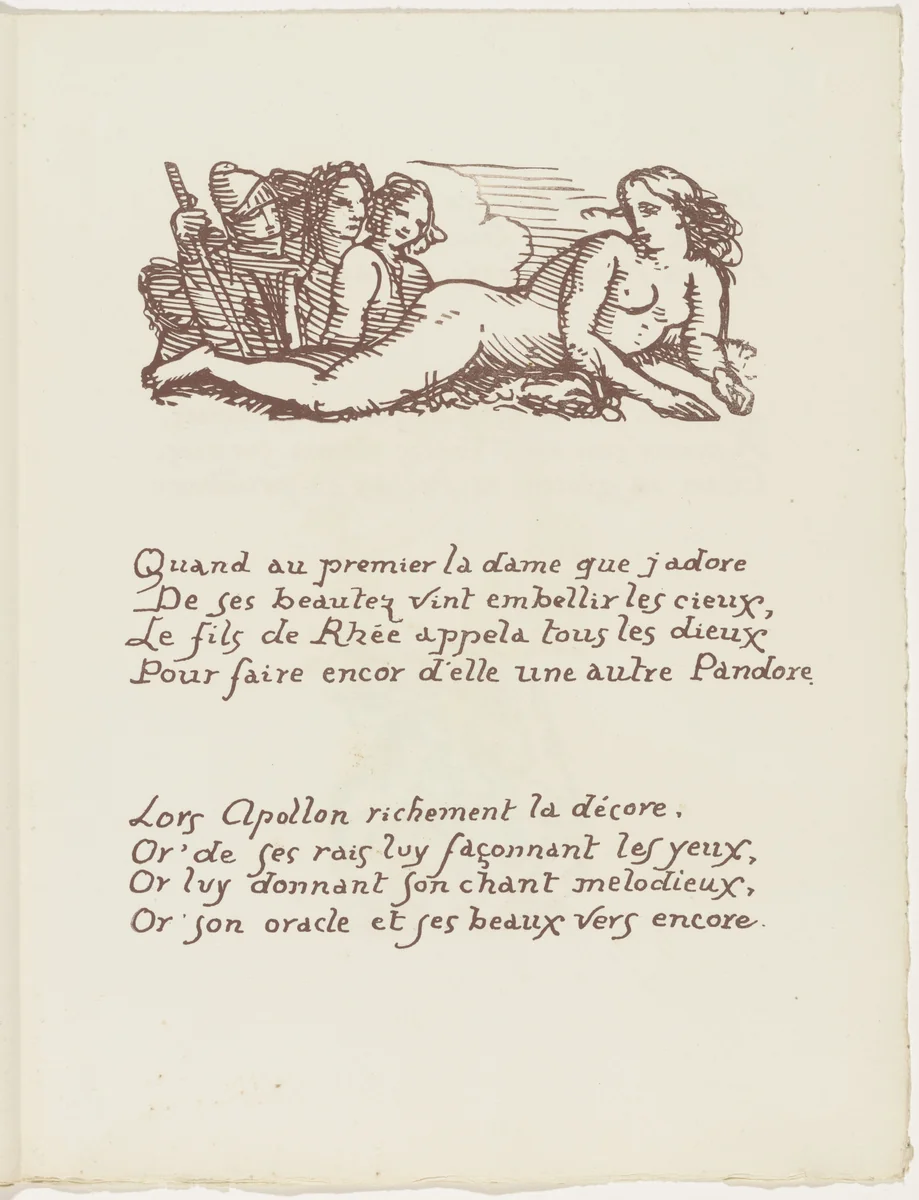 Quand au premier la dame que j'adore
De ses beautez vint embellir les cieux,
Le fils de Rhée appela tous les dieux
Pour faire encor d'elle une autre Pandore.
Lors Apollon richement la décore,
Or' de ses rais luy façonnant les yeux,
Or luy donnant son chant melodieux,
Or' son oracle et ses beaux vers encore.